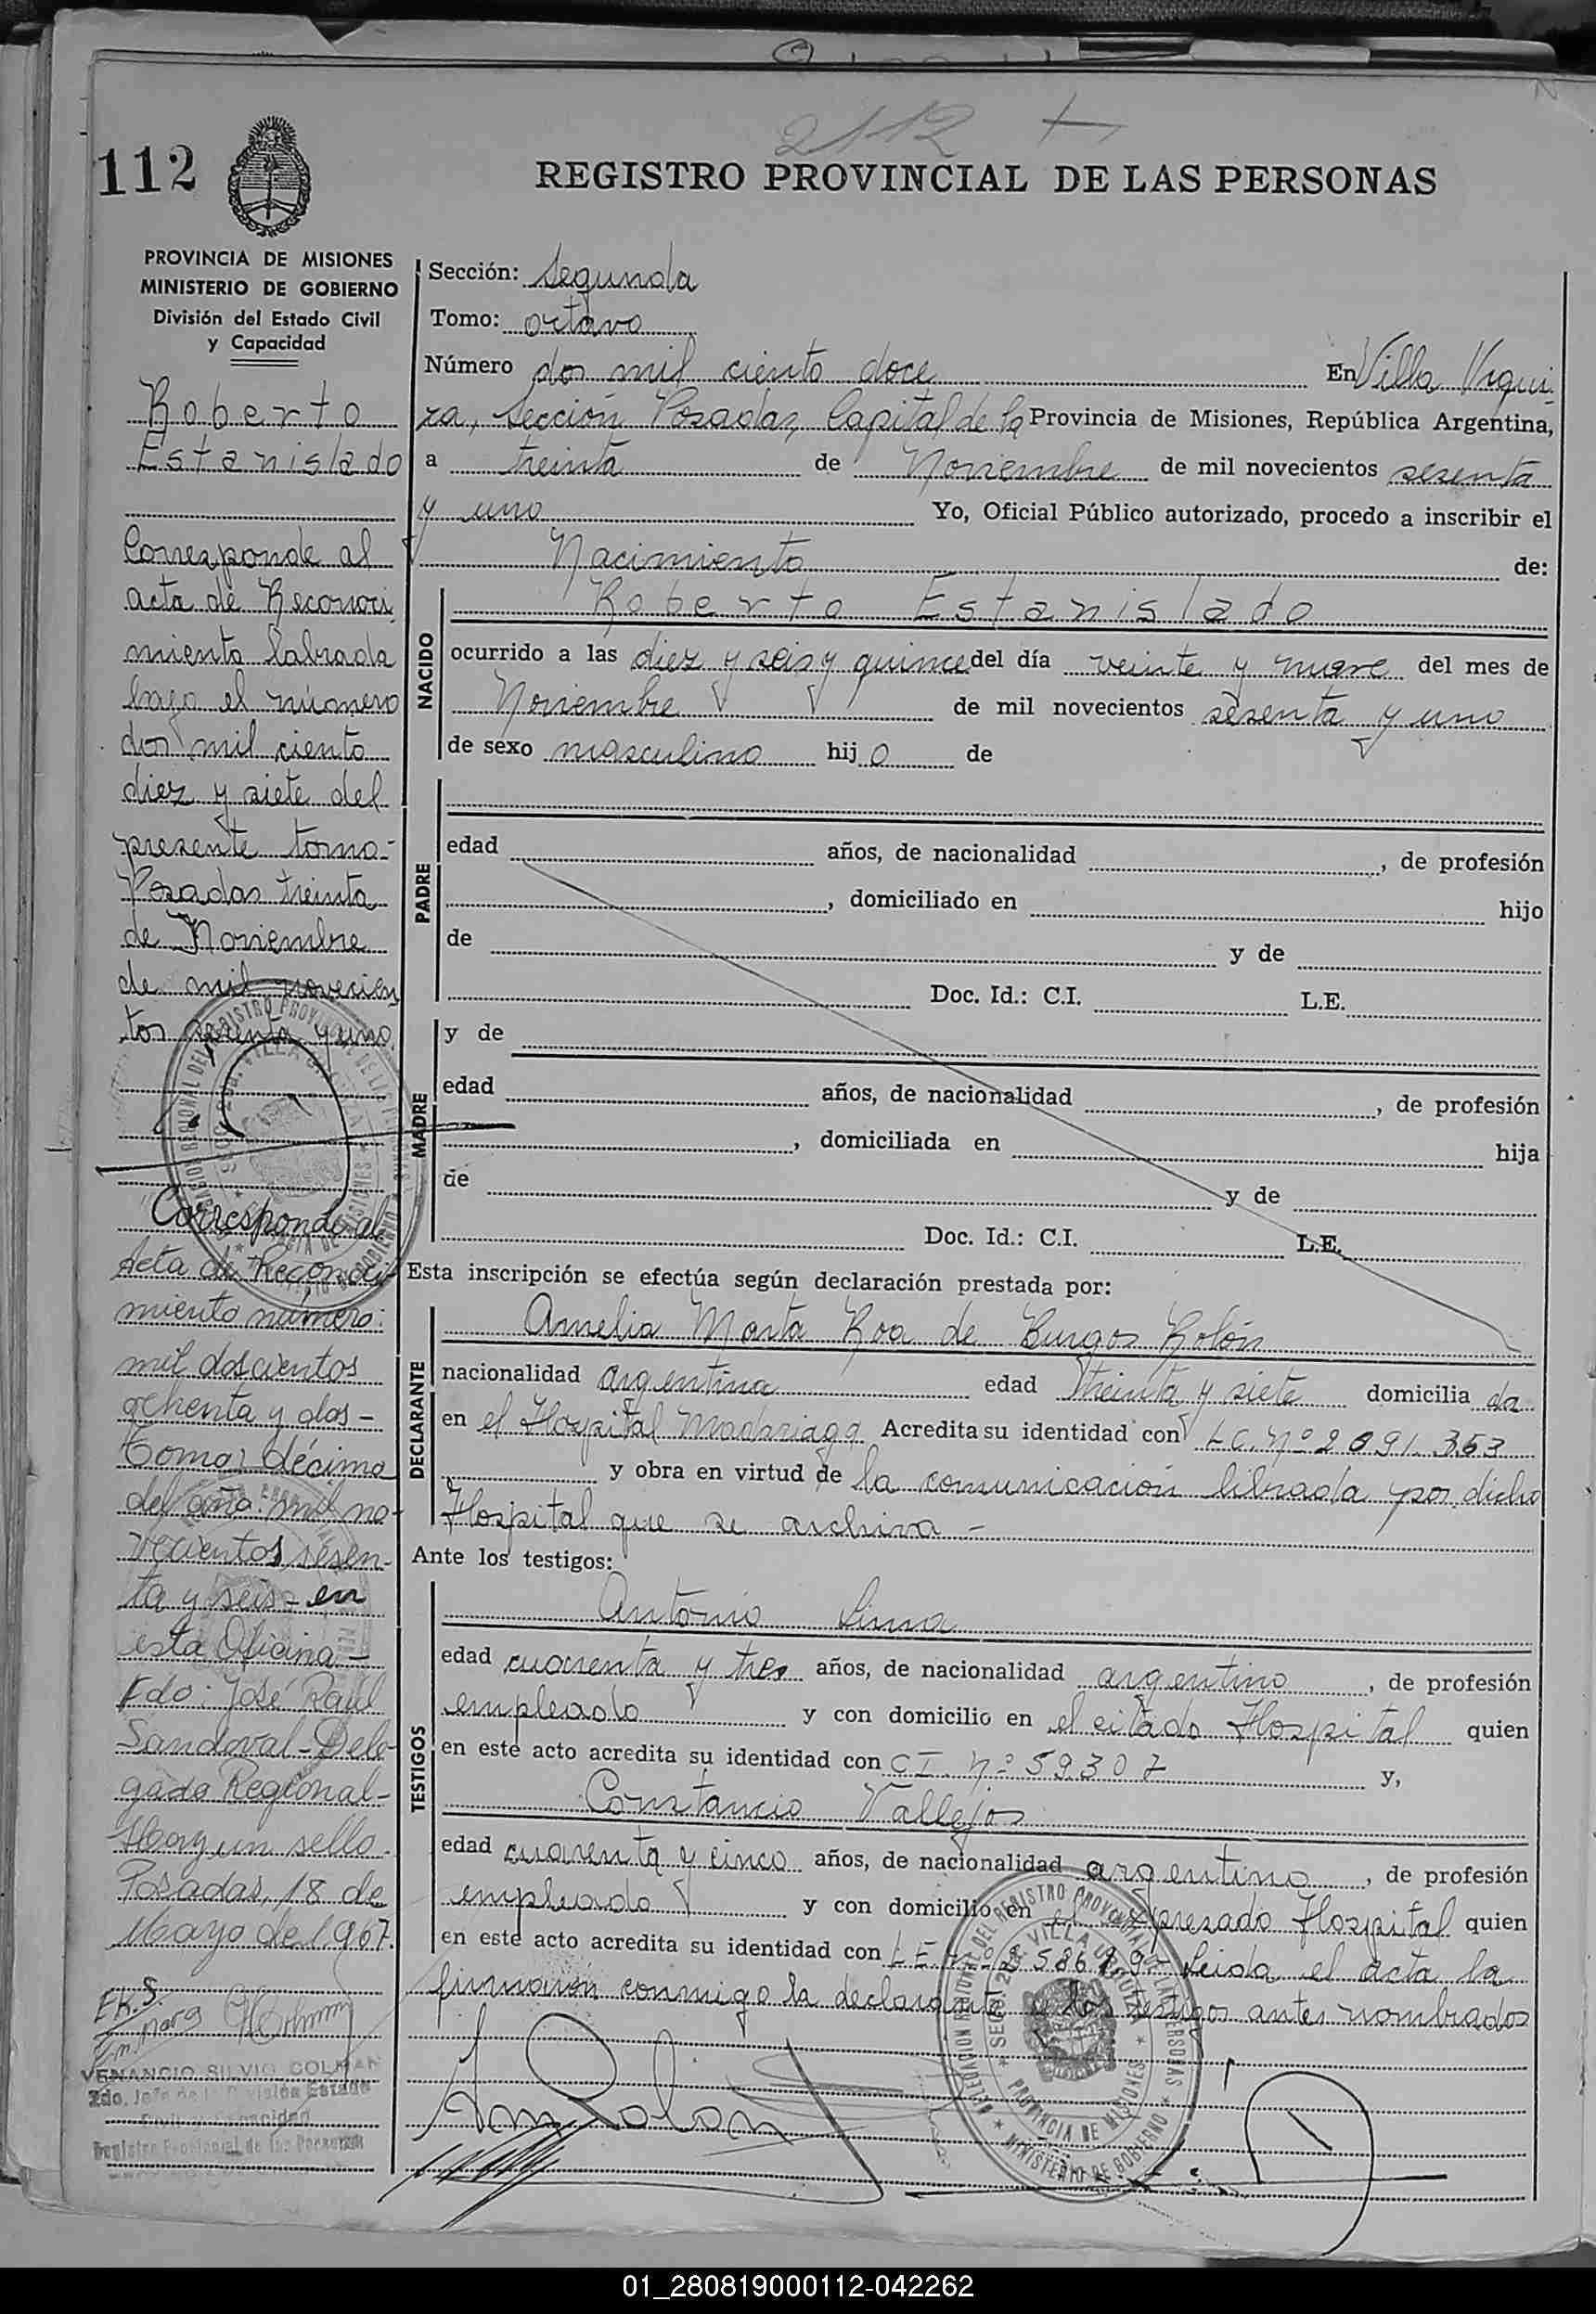 2112
112
REGISTRO PROVINCIAL DE LAS PERSONAS
PROVINCIA DE MISIONES
MINISTERIO DE GOBIERNO
División del Estado Civil
y Capacidad
Roberto
Estanislado
Corresponde al
acta de Reconoci
miento labrada
bajo el número
dos mil ciento
diez y siete del
presente tomo-
Posadas treinta
de Noviembre
de mil novecien
tos sesenta y uno.
Corresponde al
Acta de Reconoci-
miento número:
mil doscientos
ochenta y dos-
Tomo: décimo
del año: mil no-
vecientos sesen-
ta y seis- en
esta Oficina-
Fdo: José Raúl
Sandoval-Dele-
gado Regional-
Hay un sello.
Posadas, 18 de
Mayo de 1967.
VENANCIO SILVIO COLMAN
2do. Jefe de la División Estado
Civil y Capacidad
Registro Provincial de las Personas
Sección: Segunda
Tomo: octavo
Número dos mil ciento doce En Villa Urqui-
za, Sección Posadas, Capital de la Provincia de Misiones, República Argentina,
a treinta de Noviembre de mil novecientos sesenta
y uno Yo, Oficial Público autorizado, procedo a inscribir el
Nacimiento de:
NACIDO
Roberto Estanislado
ocurrido a las diez y seis y quince del día veinte y nueve del mes de
Noviembre de mil novecientos sesenta y uno
de sexo masculino hijo de
PADRE
edad años, de nacionalidad , de profesión
, domiciliado en hijo
de y de
Doc. Id.: C.I. L.E.
MADRE
y de
edad años, de nacionalidad , de profesión
, domiciliada en hija
de y de
Doc. Id.: C.I. L.E.
Esta inscripción se efectúa según declaración prestada por:
DECLARANTE
Amelia Marta Roa de Burgos Rolón
nacionalidad argentina edad treinta y siete domiciliada
en el Hospital Madariaga Acredita su identidad con L.C. Nº 2091.353
y obra en virtud de la comunicación librada por dicho
Hospital que se archiva-
Ante los testigos:
TESTIGOS
Antonio Lima
edad cuarenta y tres años, de nacionalidad argentino, de profesión
empleado y con domicilio en el citado Hospital quien
en este acto acredita su identidad con C I. Nº 59.307 y,
Constancio Vallejos
edad cuarenta y cinco años, de nacionalidad argentino, de profesión
empleado y con domicilio en el expresado Hospital quien
en este acto acredita su identidad con L E Leida el acta la
firmaron conmigo la declarante y los testigos antes nombrados
DELEGACION REGIONAL DEL REGISTRO PROVINCIAL DE LAS PERSONAS
SECC. 2da. VILLA URQUIZA
PROVINCIA DE MISIONES
MINISTERIO DE GOBIERNO
01_280819000112-042262